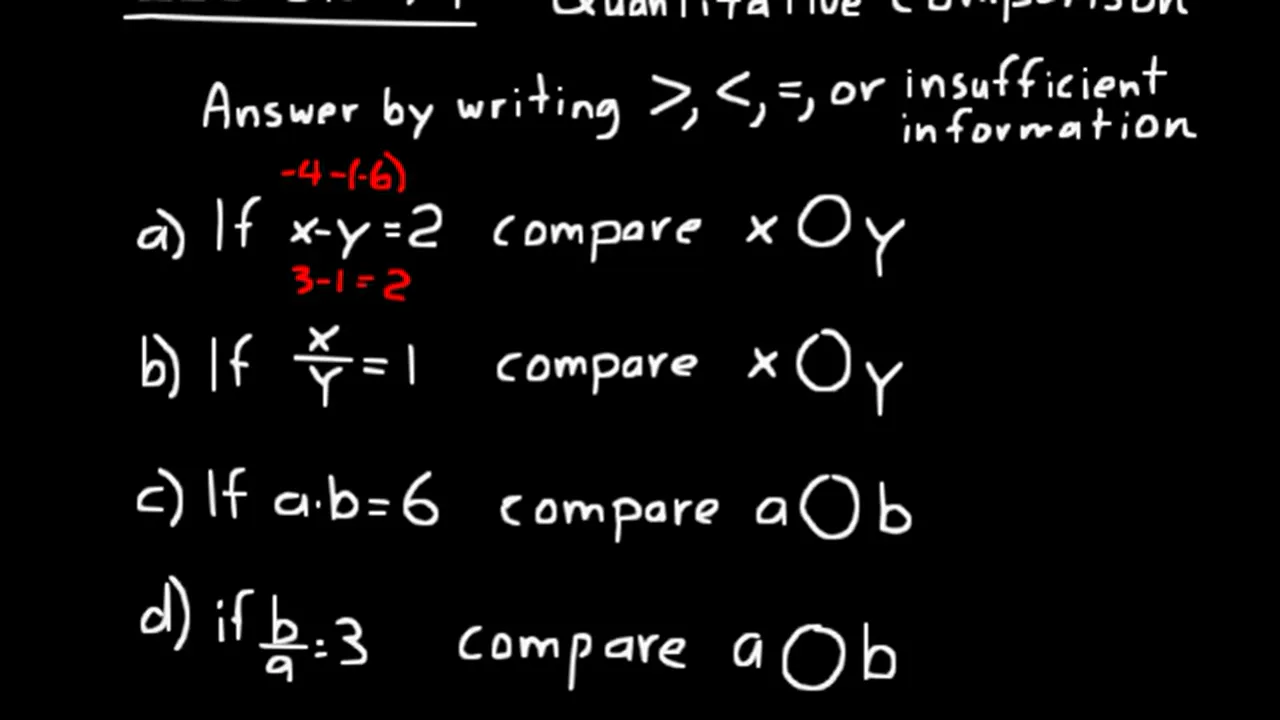 Quantitative Comparison
Answer by writing >, <, =, or insufficient
information
-4-(-6)
a) If x-y=2 compare x O y
3-1=2
b) If x/y = 1 compare x O y
c) If a·b=6 compare a O b
d) if b/a=3 compare a O b